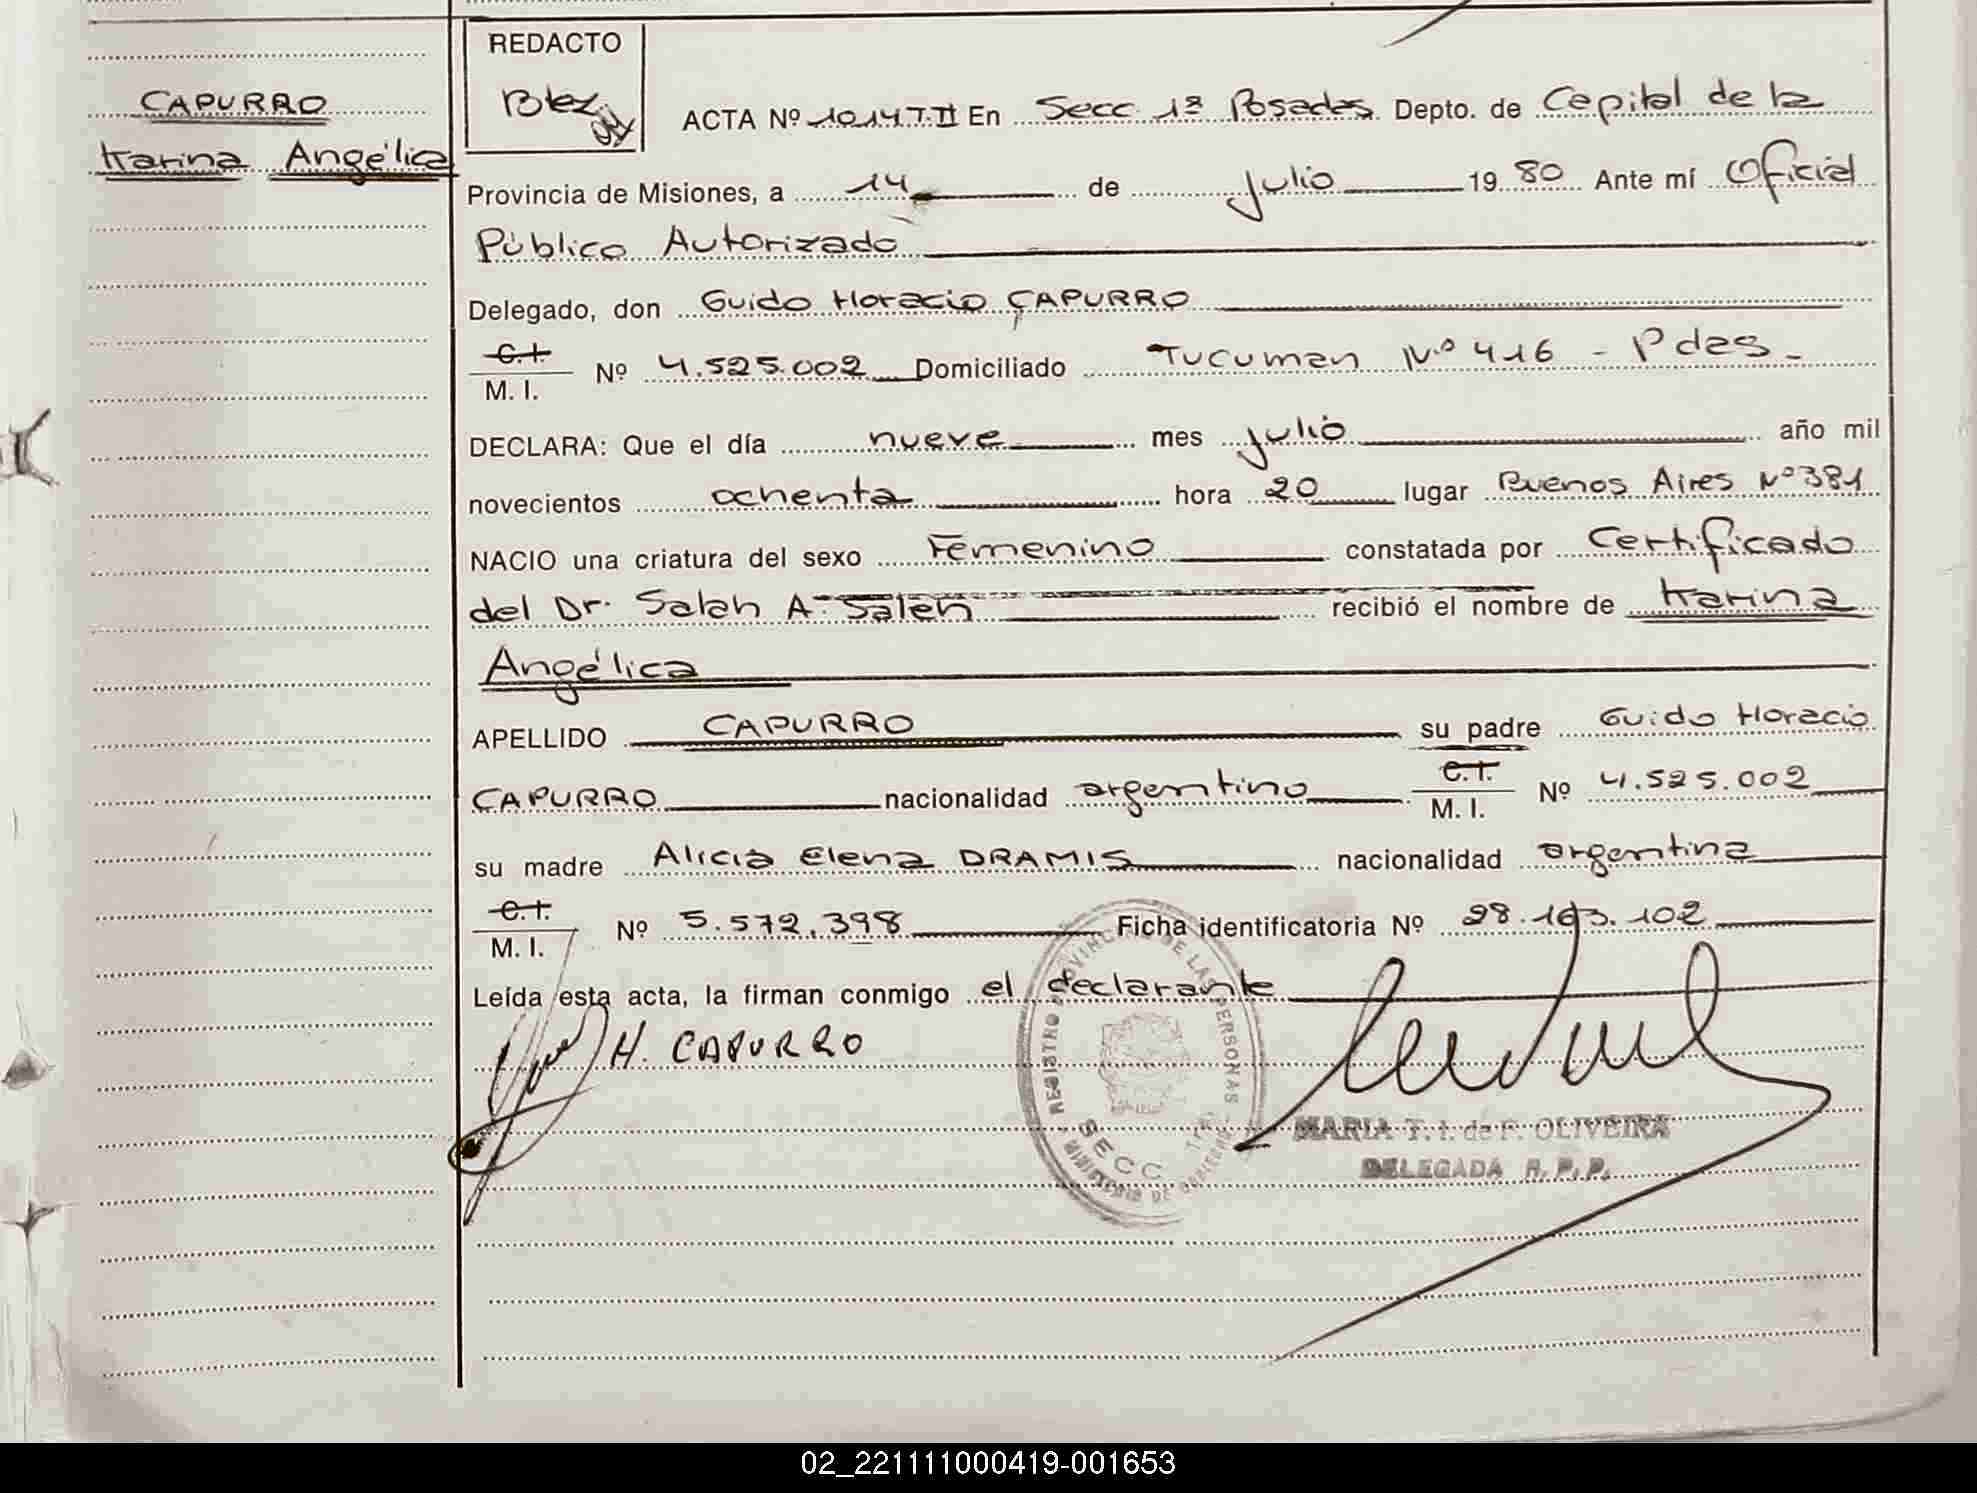 CAPURRO
Karina Angélica
REDACTO
Blez
ACTA Nº 1014 T.II En Secc 1ª Posadas Depto. de Capital de la
Provincia de Misiones, a 14 de julio 1980 Ante mí Oficial
Público Autorizado
Delegado, don Guido Horacio CAPURRO
C.I.
M. I. Nº 4.525.002 Domiciliado Tucuman Nº 416 - Pdas -
DECLARA: Que el día nueve mes julio año mil
novecientos ochenta hora 20 lugar Buenos Aires Nº 381
NACIO una criatura del sexo Femenino constatada por Certificado
del Dr. Salah A. Saleh recibió el nombre de Karina
Angélica
APELLIDO CAPURRO su padre Guido Horacio
CAPURRO nacionalidad argentino C.I. M. I. Nº 4.525.002
su madre Alicia Elena DRAMIS nacionalidad argentina
C.I.
M. I. Nº 5.572.398 Ficha identificatoria Nº 28.163.102
Leída esta acta, la firman conmigo el declarante
H. CAPURRO
REGISTRO PROVINCIAL DE LAS PERSONAS
SECC
MINISTERIO DE GOBIERNO
MARIA T. I. de F. OLIVEIRA
DELEGADA R. P. P.
02_221111000419-001653